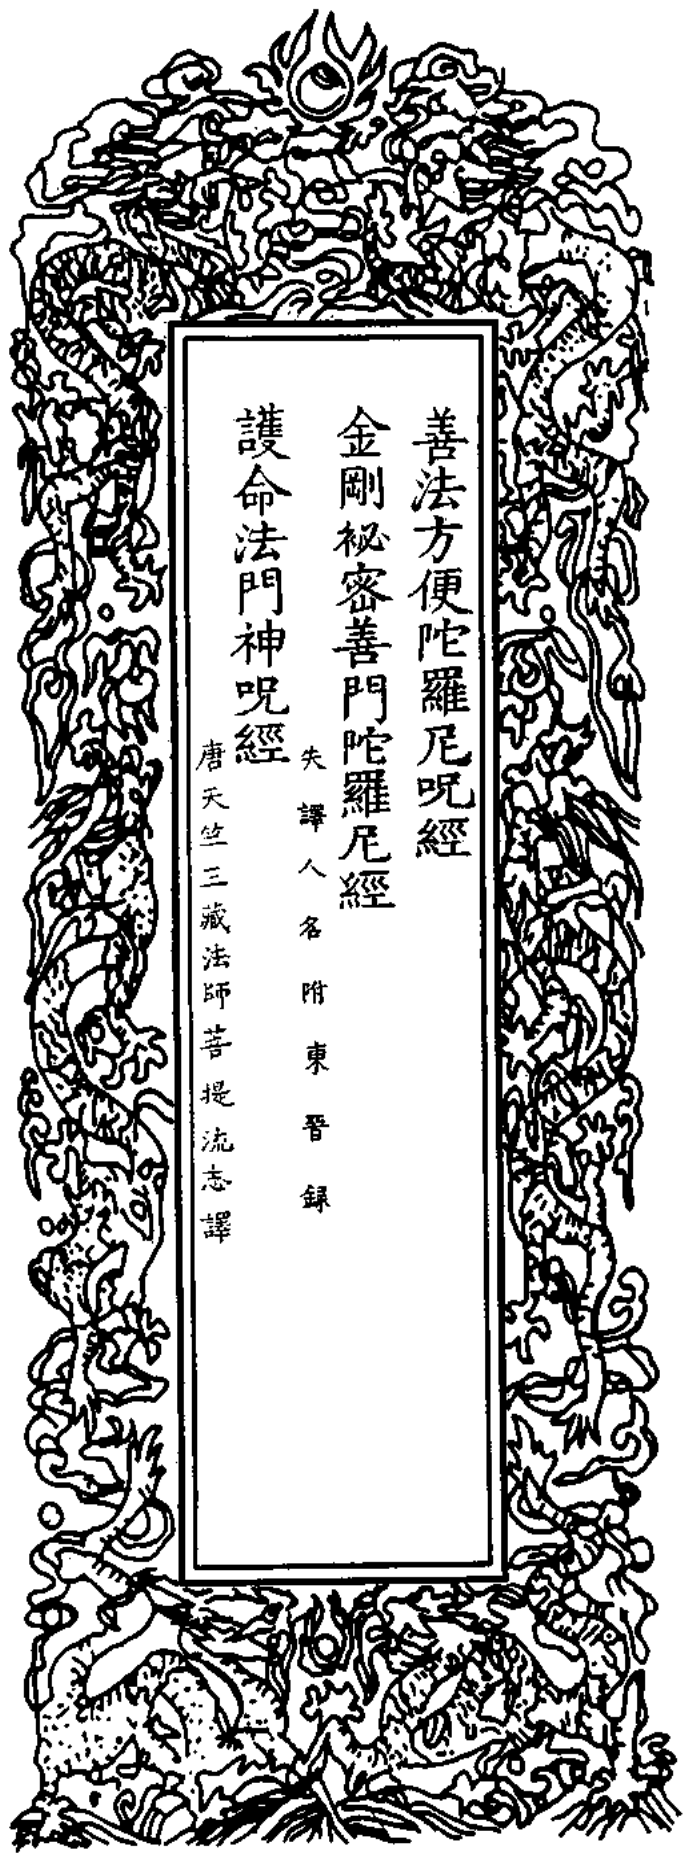 善法方便陀羅尼呪經
金剛祕密善門陀羅尼經
失譯人名附東晉録
護命法門神呪經
唐天竺三藏法師菩提流志譯